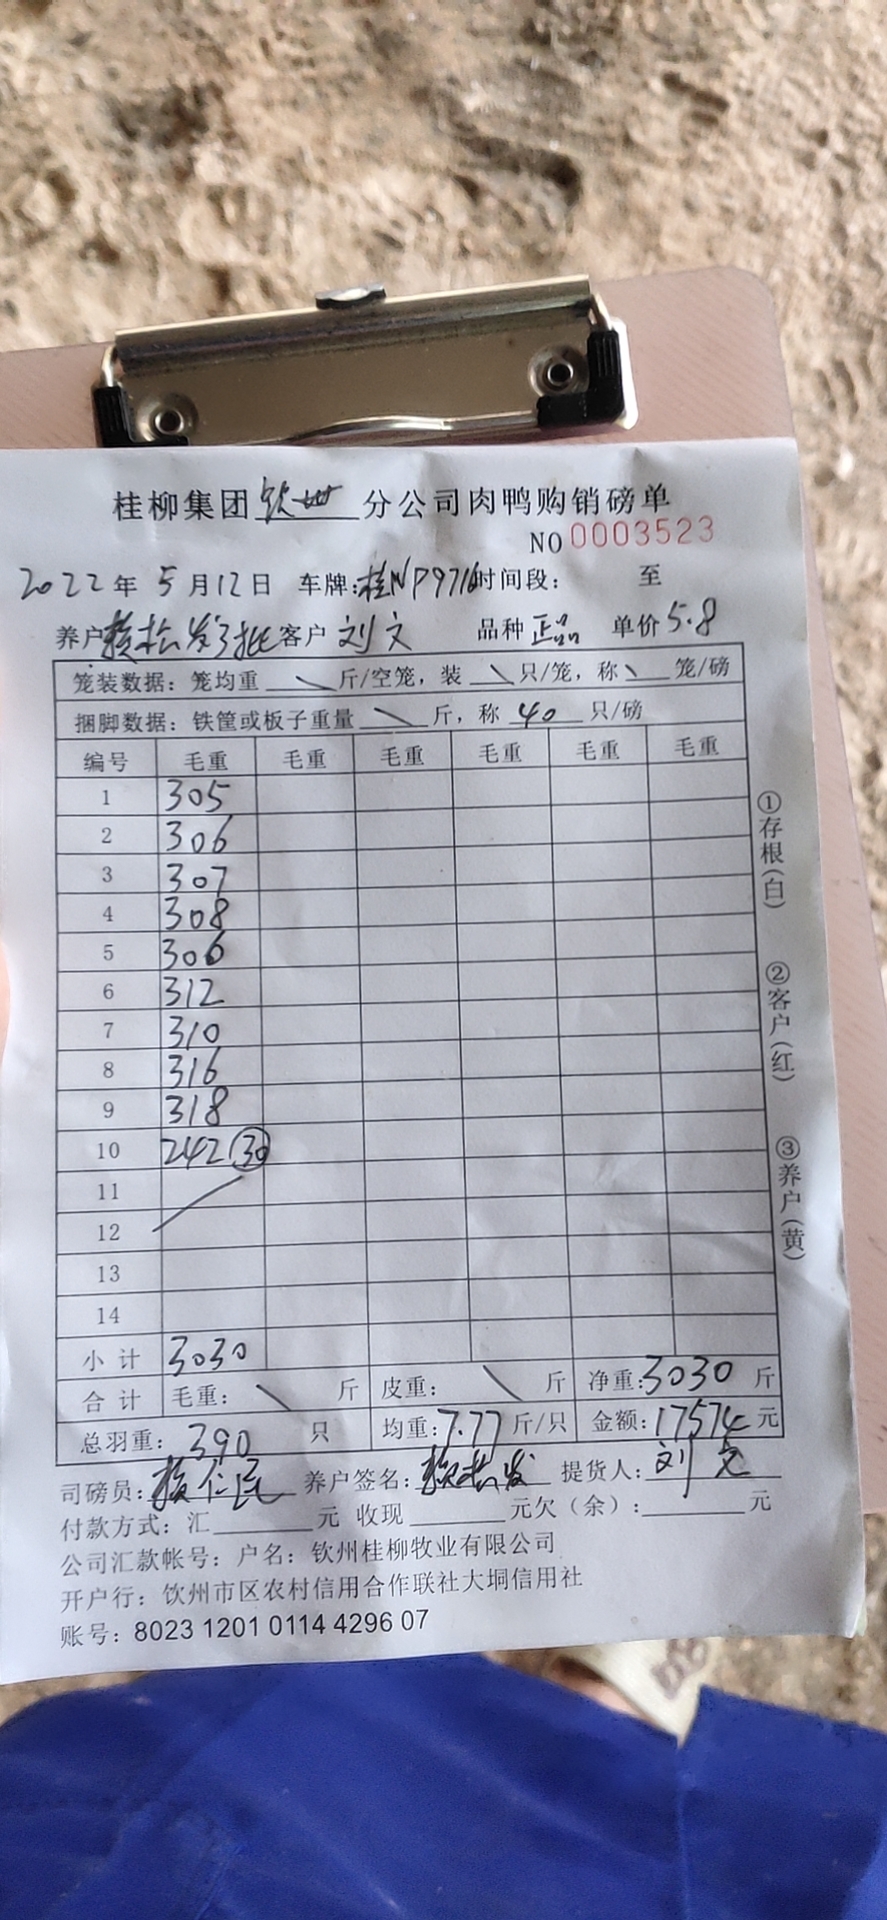 桂柳集团钦州分公司肉鸭购销磅单
NO 0003523
2022年5月12日 车牌:桂NP9716时间段: 至
养户赖松发3批客户刘文 品种正品 单价5.8
笼装数据：笼均重 \ 斤/空笼，装 \ 只/笼，称 \ 笼/磅
捆脚数据：铁筐或板子重量 \ 斤，称 40 只/磅
编号 毛重 毛重 毛重 毛重 毛重 毛重
1 305
2 306
3 307
4 308
5 306
6 312
7 310
8 316
9 318
10 242 30
11
12
13
14
小计 3030
合计 毛重： \ 斤 皮重： \ 斤 净重:3030 斤
总羽重：390 只 均重:7.77斤/只 金额:17574元
司磅员:赖仁民 养户签名:赖松发 提货人:刘文
付款方式：汇 元 收现 元欠（余）: 元
公司汇款帐号：户名：钦州桂柳牧业有限公司
开户行：钦州市区农村信用合作联社大垌信用社
账号：8023 1201 0114 4296 07
①存根(白)
②客户(红)
③养户(黄)